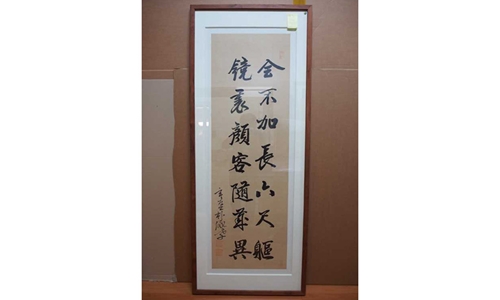 会不加長六尺軀
鏡裏顔容隨歲異